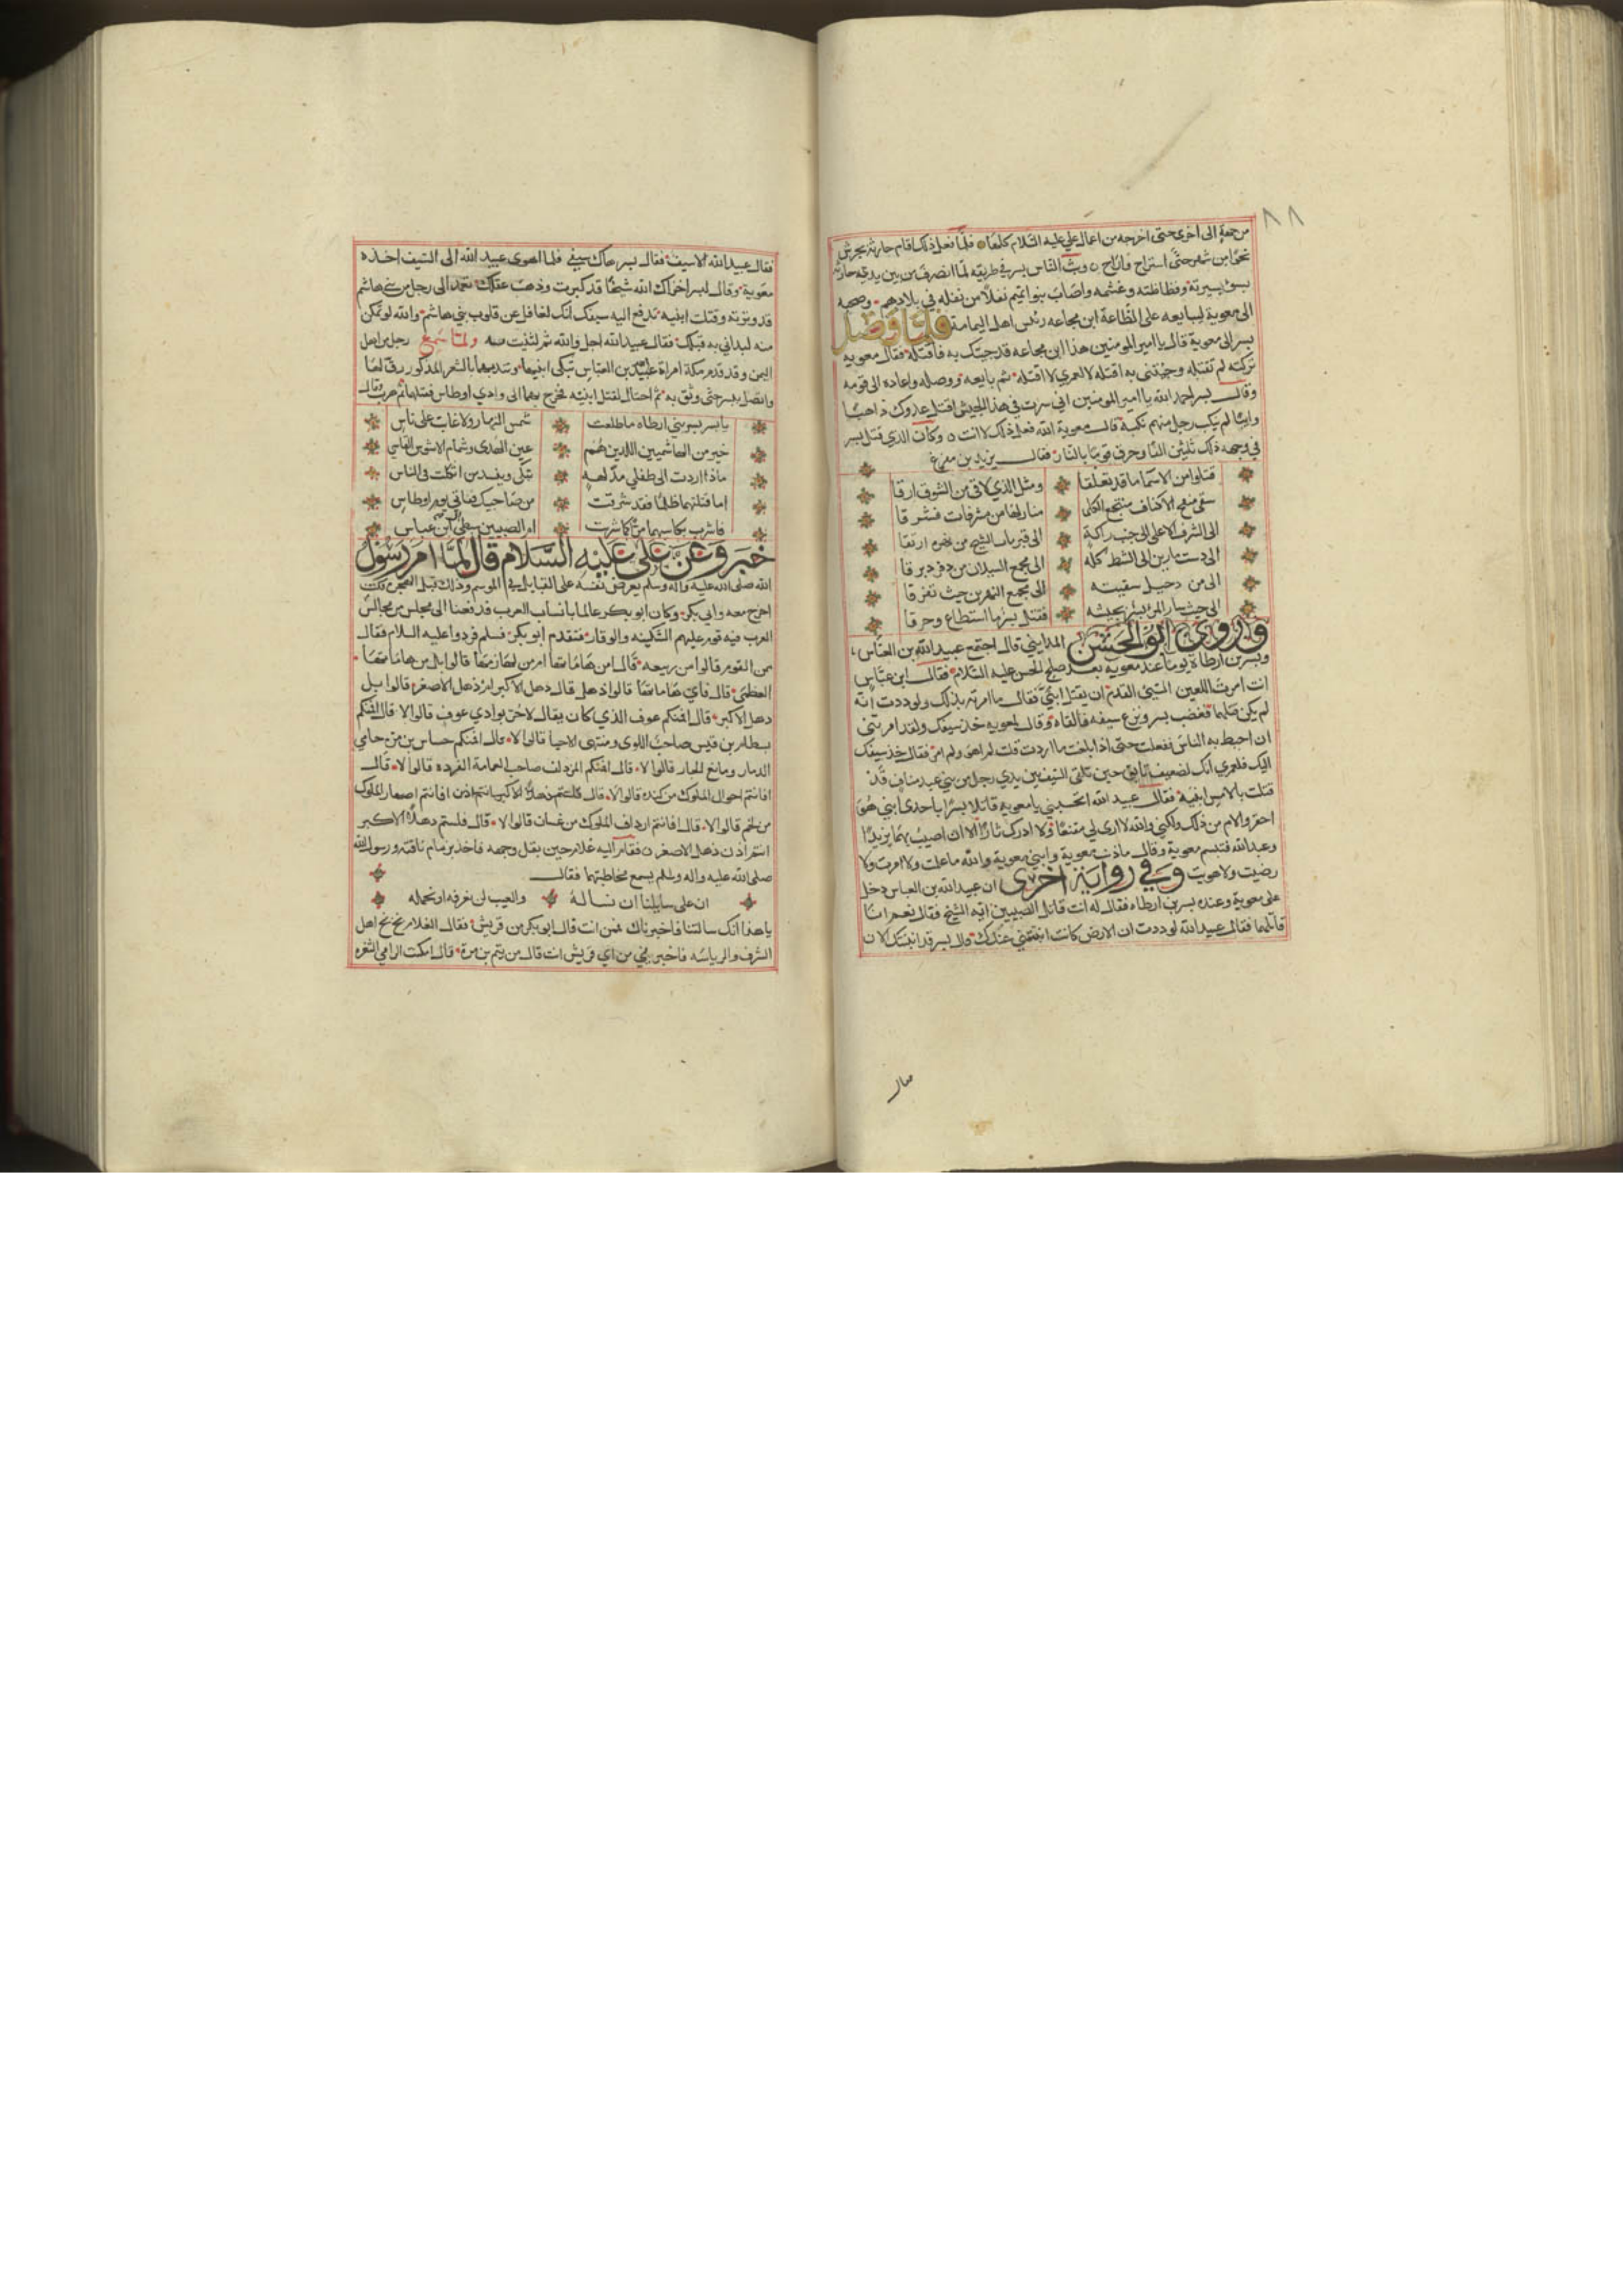 ٨٨
من جهة الى اخرى حتى اخرجه من اعمال علي عليه السلام كلها فلما فعل ذلك اقام حارثه بجرش
نحوا من شهر حتى استراح واراح وثب الناس ببسر في طريقه لما انصرف من بين يدي حارثه
بسوء سيرته وفظاظته وغشمه واصاب بنو تميم نفلا من نفله في بلادهم وصحبه
الى معوية ليبايعه على الطاعة ابن مجاعه رئيس اهل اليمامة فلما وصل
بسر الى معوية قال يا امير المومنين هذا ابن مجاعه قد جيتك به فاقتله فقال معويه
تركته لم تقتله وجئتني به اقتله لا لعمري لا اقتله ثم بايعه ووصله واعاده الى قومه
وقال بسر احمد الله يا امير المومنين اني سرت في هذا الجيش اقتل عدوك ذاهبا
وايبا لم ينكب رجل منهم نكبة قال معوية الله فعل ذلك لا انت وكان الذي قتل بسر
في وجهه ذلك ثلثين الفا وحرق قوما بالنار فقال يزيد بن مفرغ
تعلقا من الاسما ما قد تعلقا ومثل الذي لاقى من الشوق ارقا
سقى الاكناف منبعج الكلى منازلها من مشرفات فشرقا
الى الشرف الاعلى الى
الى دست مارين الى الشط كله الى مجمع السلان من
الى من الى مجمع النهرين حيث تفرقا
الى حيث سار المر بسر بجيشه فقتل بسر ما استطاع وحرقا
وروى ابو الحسن المدايني قال اجتمع عبيد الله بن العباس
وبسر بن ارطاة يوما عند معويه بعد صلح الحسن عليه السلام فقال ابن عباس
انت امرت اللعين السيئ القدم ان يقتل ابني فقال ما امرته بذلك ولوددت انه
لم يكن قتلهما فغضب بسر ونزع سيفه فالقاه وقال لمعويه خذ سيفك ولقد امرتني
ان اخبط به الناس ففعلت حتى اذا بلغت ما اردت قلت لم اهو ولم امر فقال خذ سيفك
اليك فلعمري انك لضعيف مايق حين تلقي السيف بين يدي رجل من بني عبد مناف قد
قتلت بالامس ابنيه فقال عبيد الله اتحسبني يا معويه قاتلا بسرا باحد ابني هو
احقر والام من ذلك ولكني والله لا ارى لي مقنعا ولا ادرك ثارا الا ان اصيب بهما يزيدا
وعبد الله فتبسم معوية وقال ما ذنب معوية وابني معوية والله ما علمت ولا امرت ولا
رضيت ولا هويت وفي رواية اخرى ان عبيد الله بن العباس دخل
على معوية وعنده بسر بن ارطاه فقال له انت قاتل الصبيين ايه الشيخ فقال نعم انا
قاتلهما فقال عبيد الله لوددت ان الارض كانت انبتتني عندك قال بسر قد انبتتك الان
فقال عبيد الله الا سيف فقال بسر هاك سيفي فلما اهوى عبيد الله الى السيف اخذه
معوية وقال لبسر اخزاك الله شيخا قد كبرت وذهب عقلك تعمد الى رجل من بني هاشم
قد وترته وقتلت ابنيه تدفع اليه سيفك انك لغافل عن قلوب بني هاشم والله لو تمكن
منه لبدا بي قبلك فقال عبيد الله اجل والله ثم لثنيت به ولما سمع رجل من اهل
اليمن وقد قدم مكة امراة عبيد بن العباس تبكي ابنيها وتندبهما بالشعر المذكور رق لها
واتصل ببسر حتى وثق به ثم احتال لقتل ابنيه فخرج بهما الى وادي اوطاس فقتلهما ثم هرب وقال
يا بسر بسر بني ارطاه ما طلعت شمس النهار ولا غابت على ناس
خير من الهاشميين اللذين هم عين الهدى وسمام الاشوس القاسي
ماذا اردت الى طفلي مدلهه تبكي وتندب من اثكلت في الناس
اما قتلتهما ظلما فقد شرقت من صاحبيك قناتي يوم اوطاس
فاشرب بكاسهما ثكلا كما شربت ام الصبيين ابن عباس
خبر وعن علي عليه السلام قال لما امر رسول
الله صلى الله عليه واله وسلم يعرض نفسه على القبايل في الموسم وذلك قبل الهجرة كنت
اخرج معه وابي بكر وكان ابو بكر عالما بانساب العرب قد فعنا الى مجلس من مجالس
العرب فيه قوم عليهم السكينه والوقار فتقدم ابو بكر فسلم فردوا عليه السلام فقال
ممن القوم قالوا من ربيعه قال امن هاماتها ام من لهازمها قالوا بل من هاماتها
العظمى قال فاي هاماتها قالوا ذهل قال ذهل الاكبر ام ذهل الاصغر قالوا بل
ذهل الاكبر قال افمنكم عوف الذي كان يقال لا حر بوادي عوف قالوا لا قال افمنكم
بسطام بن قيس صاحب اللوى ومنتهى الاحيا قالوا لا قال افمنكم حساس بن مرة حامي
الذمار ومانع الجار قالوا لا قال افمنكم المزدلف صاحب العمامة الفرده قالوا لا قال
افانتم اخوال الملوك من كنده قالوا لا قال افانتم اصهار الملوك
من لخم قالوا لا قال افانتم ارداف الملوك من غسان قالوا لا قال فلستم ذهلا الاكبر
انتم اذن ذهل الاصغر فقام اليه غلام حين بقل وجهه فاخذ بزمام ناقته ورسول الله
صلى الله عليه واله وسلم يسمع مخاطبتهما فقال
ان على سايلنا ان نساله والعبء لن نعرفه او نحمله
يا هذا انك سالتنا فاخبرناك فمن انت قال ابو بكر من قريش فقال الغلام بخ بخ اهل
الشرف والرياسه فاخبرني من اي قريش انت قال من تيم بن مرة قال امكنت الرامي الثغره